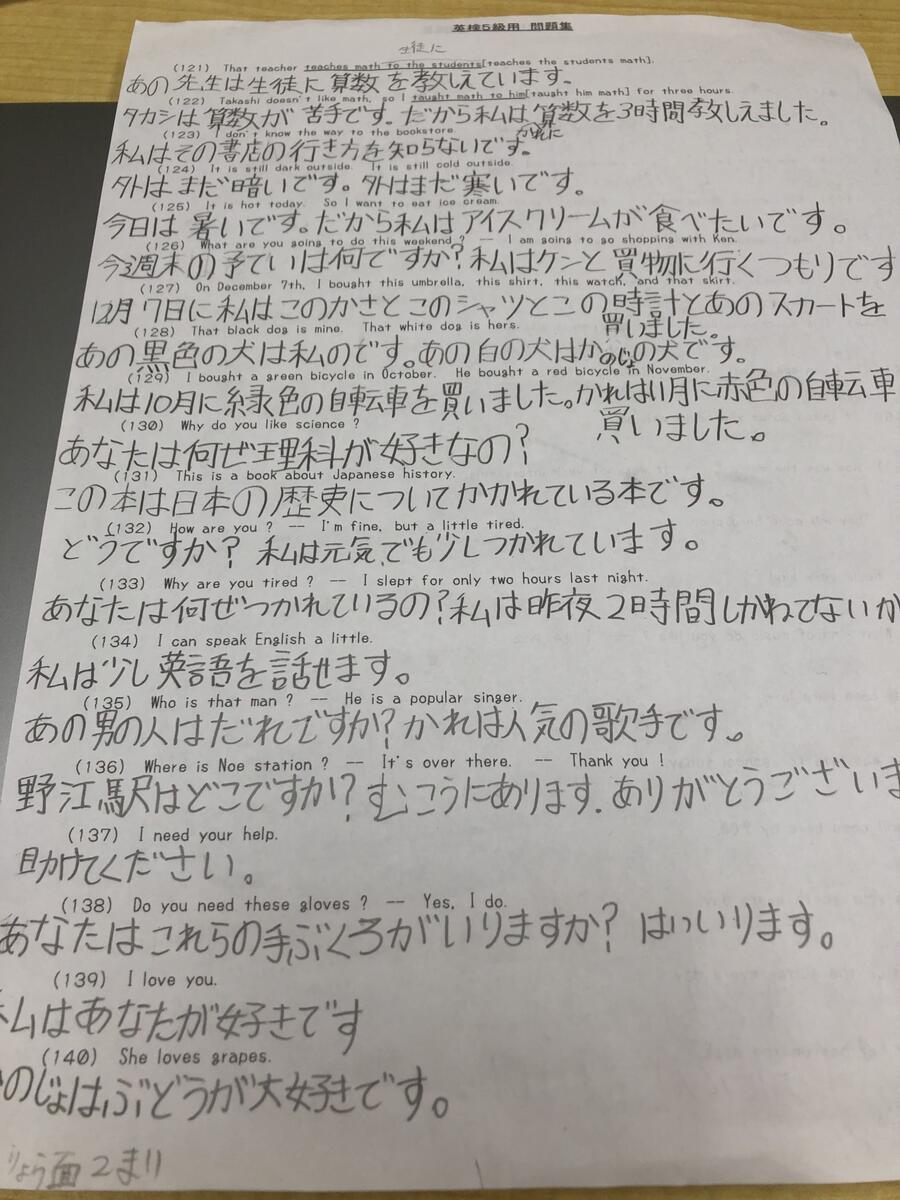 英検5級用 問題集
生徒に
(121) That teacher teaches math to the students[teaches the students math].
あの先生は生徒に算数を教えています。
(122) Takashi doesn't like math, so I taught math to him[taught him math] for three hours.
タカシは算数が苦手です。だから私は算数を3時間教えしました。
かれに
(123) I don't know the way to the bookstore.
私はその書店の行き方を知らないです。
(124) It is still dark outside. It is still cold outside.
外はまだ暗いです。外はまだ寒いです。
(125) It is hot today. So I want to eat ice cream.
今日は暑いです。だから私はアイスクリームが食べたいです。
(126) What are you going to do this weekend? -- I am going to go shopping with Ken.
今週末の予ていは何ですか?私はケンと買物に行くつもりです
(127) On December 7th, I bought this umbrella, this shirt, this watch, and that skirt.
12月7日に私はこのかさとこのシャツとこの時計とあのスカートを
買いました。
(128) That black dog is mine. That white dog is hers.
あの黒色の犬は私のです。あの白の犬はかのじょの犬です。
(129) I bought a green bicycle in October. He bought a red bicycle in November.
私は10月に緑色の自転車を買いました。かれは11月に赤色の自転車
買いました。
(130) Why do you like science ?
あなたは何ぜ理科が好きなの?
(131) This is a book about Japanese history.
この本は日本の歴史についてかかれている本です。
(132) How are you ? -- I'm fine, but a little tired.
どうですか? 私は元気、でも少しつかれています。
(133) Why are you tired ? -- I slept for only two hours last night.
あなたは何ぜつかれているの?私は昨夜2時間しかねてないか
(134) I can speak English a little.
私は少し英語を話せます。
(135) Who is that man ? -- He is a popular singer.
あの男の人はだれですか?かれは人気の歌手です。
(136) Where is Noe station ? -- It's over there. -- Thank you !
野江駅はどこですか?むこうにあります.ありがとうございま
(137) I need your help.
助けてください。
(138) Do you need these gloves ? -- Yes, I do.
あなたはこれらの手ぶくろがいりますか? はいいります。
(139) I love you.
私はあなたが好きです
(140) She loves grapes.
のじょはぶどうが大好きです。
りょう面2まい